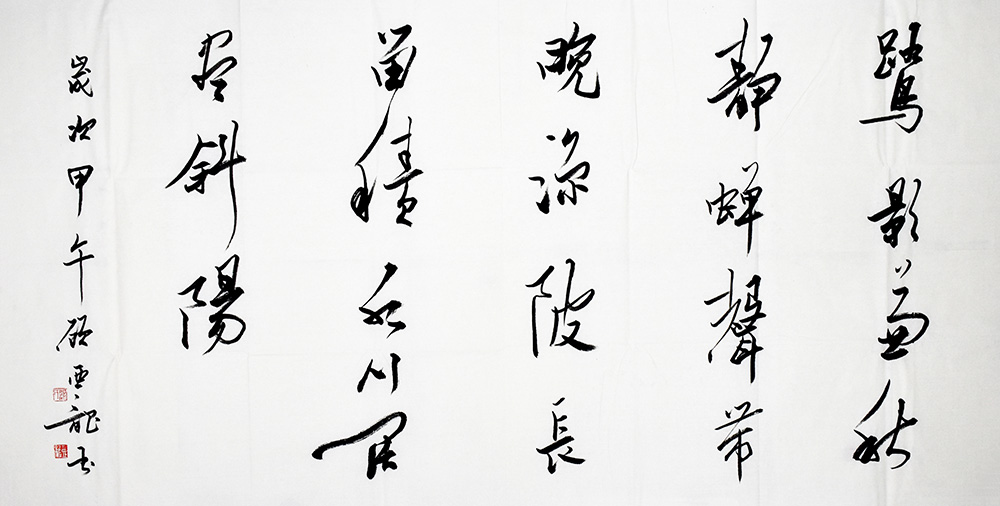 鷺影兼秋
靜蟬聲帶
晚涼陂長
留積水川闊
盡斜陽
歲次甲午雲龍书